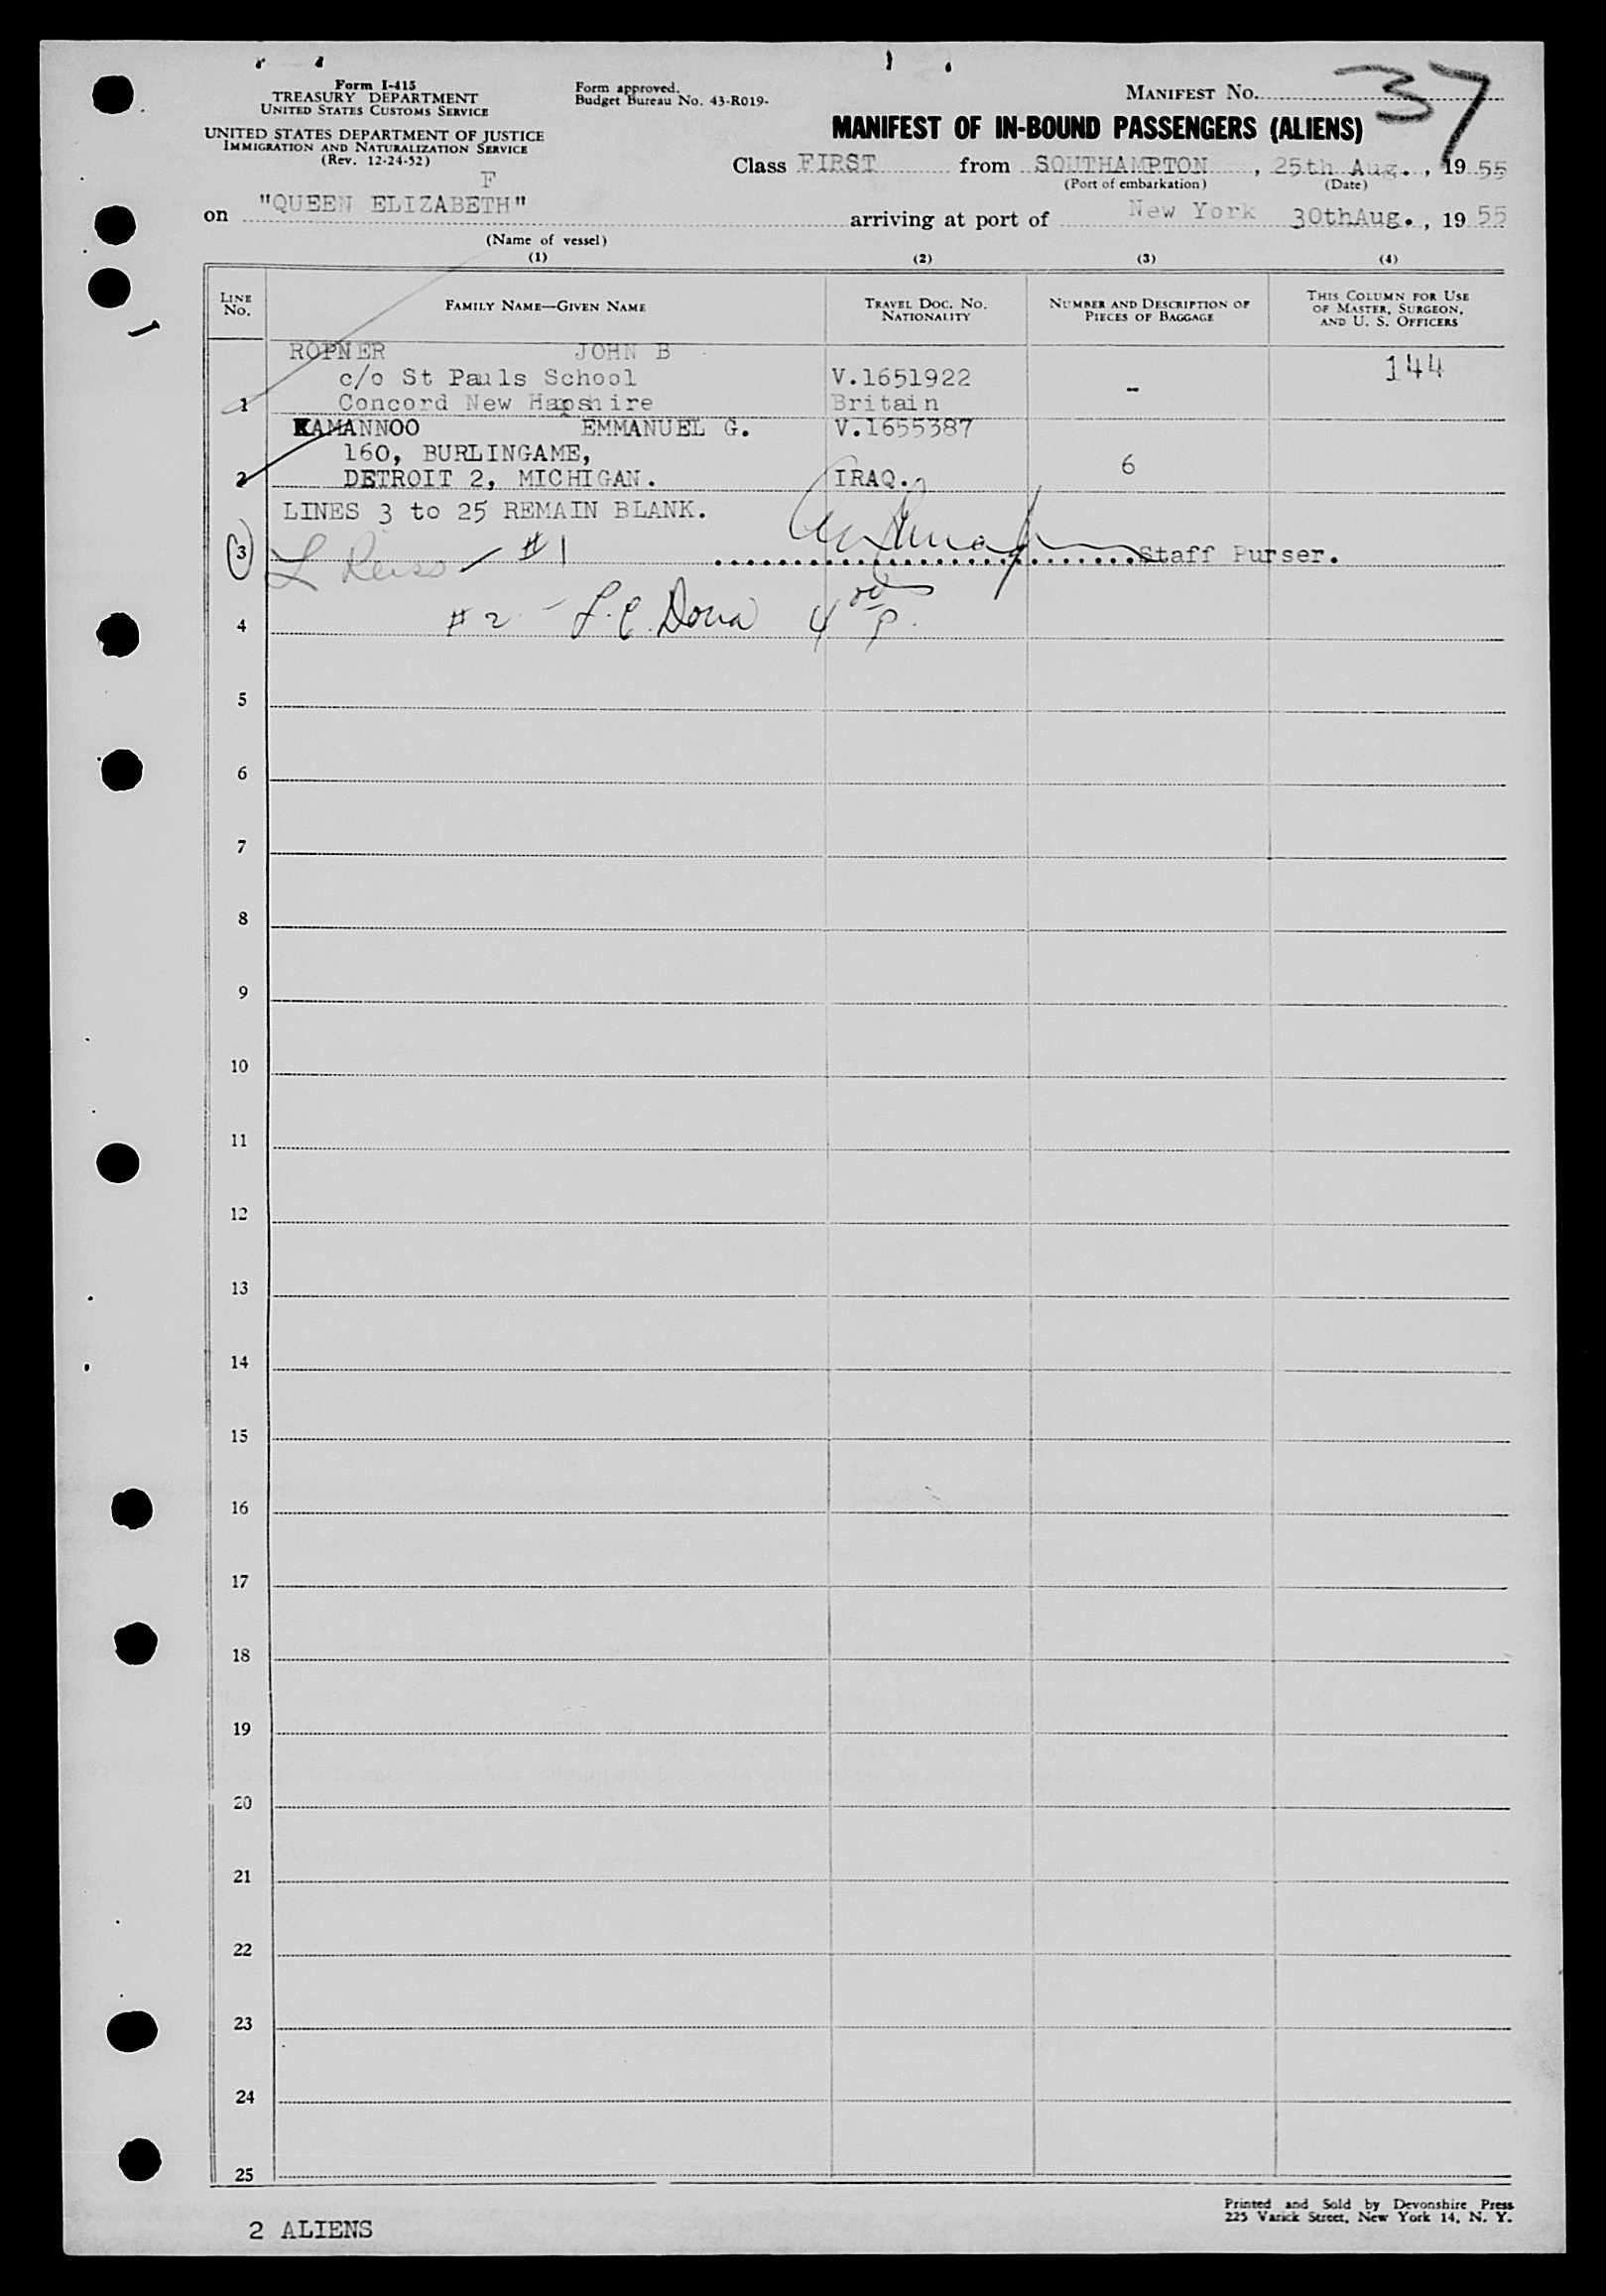 Form I-415
TREASURY DEPARTMENT
UNITED STATES CUSTOMS SERVICE
UNITED STATES DEPARTMENT OF JUSTICE
IMMIGRATION AND NATURALIZATION SERVICE
(Rev. 12-24-52)
Form approved.
Budget Bureau No. 43-R019-
MANIFEST NO. 37
MANIFEST OF IN-BOUND PASSENGERS (ALIENS)
Class FIRST from SOUTHAMPTON, 25th Aug., 1955
(Port of embarkation) (Date)
F
on "QUEEN ELIZABETH" arriving at port of New York 30thAug., 1955
(Name of vessel)
(1) (2) (3) (4)
LINE NO. FAMILY NAME—GIVEN NAME TRAVEL DOC. NO. NATIONALITY NUMBER AND DESCRIPTION OF PIECES OF BAGGAGE THIS COLUMN FOR USE OF MASTER, SURGEON, AND U. S. OFFICERS
ROPNER JOHN B 144
c/o St Pauls School V.1651922 -
1 Concord New Hapshire Britain
KAMANNOO EMMANUEL G. V.1655387
160, BURLINGAME, 6
2 DETROIT 2, MICHIGAN. IRAQ.
LINES 3 to 25 REMAIN BLANK.
3 L Reiss #1 Staff Purser.
4 #2 - L.C. Dona 4
5
6
7
8
9
10
11
12
13
14
15
16
17
18
19
20
21
22
23
24
25
Printed and Sold by Devonshire Press
225 Varick Street, New York 14, N. Y.
2 ALIENS